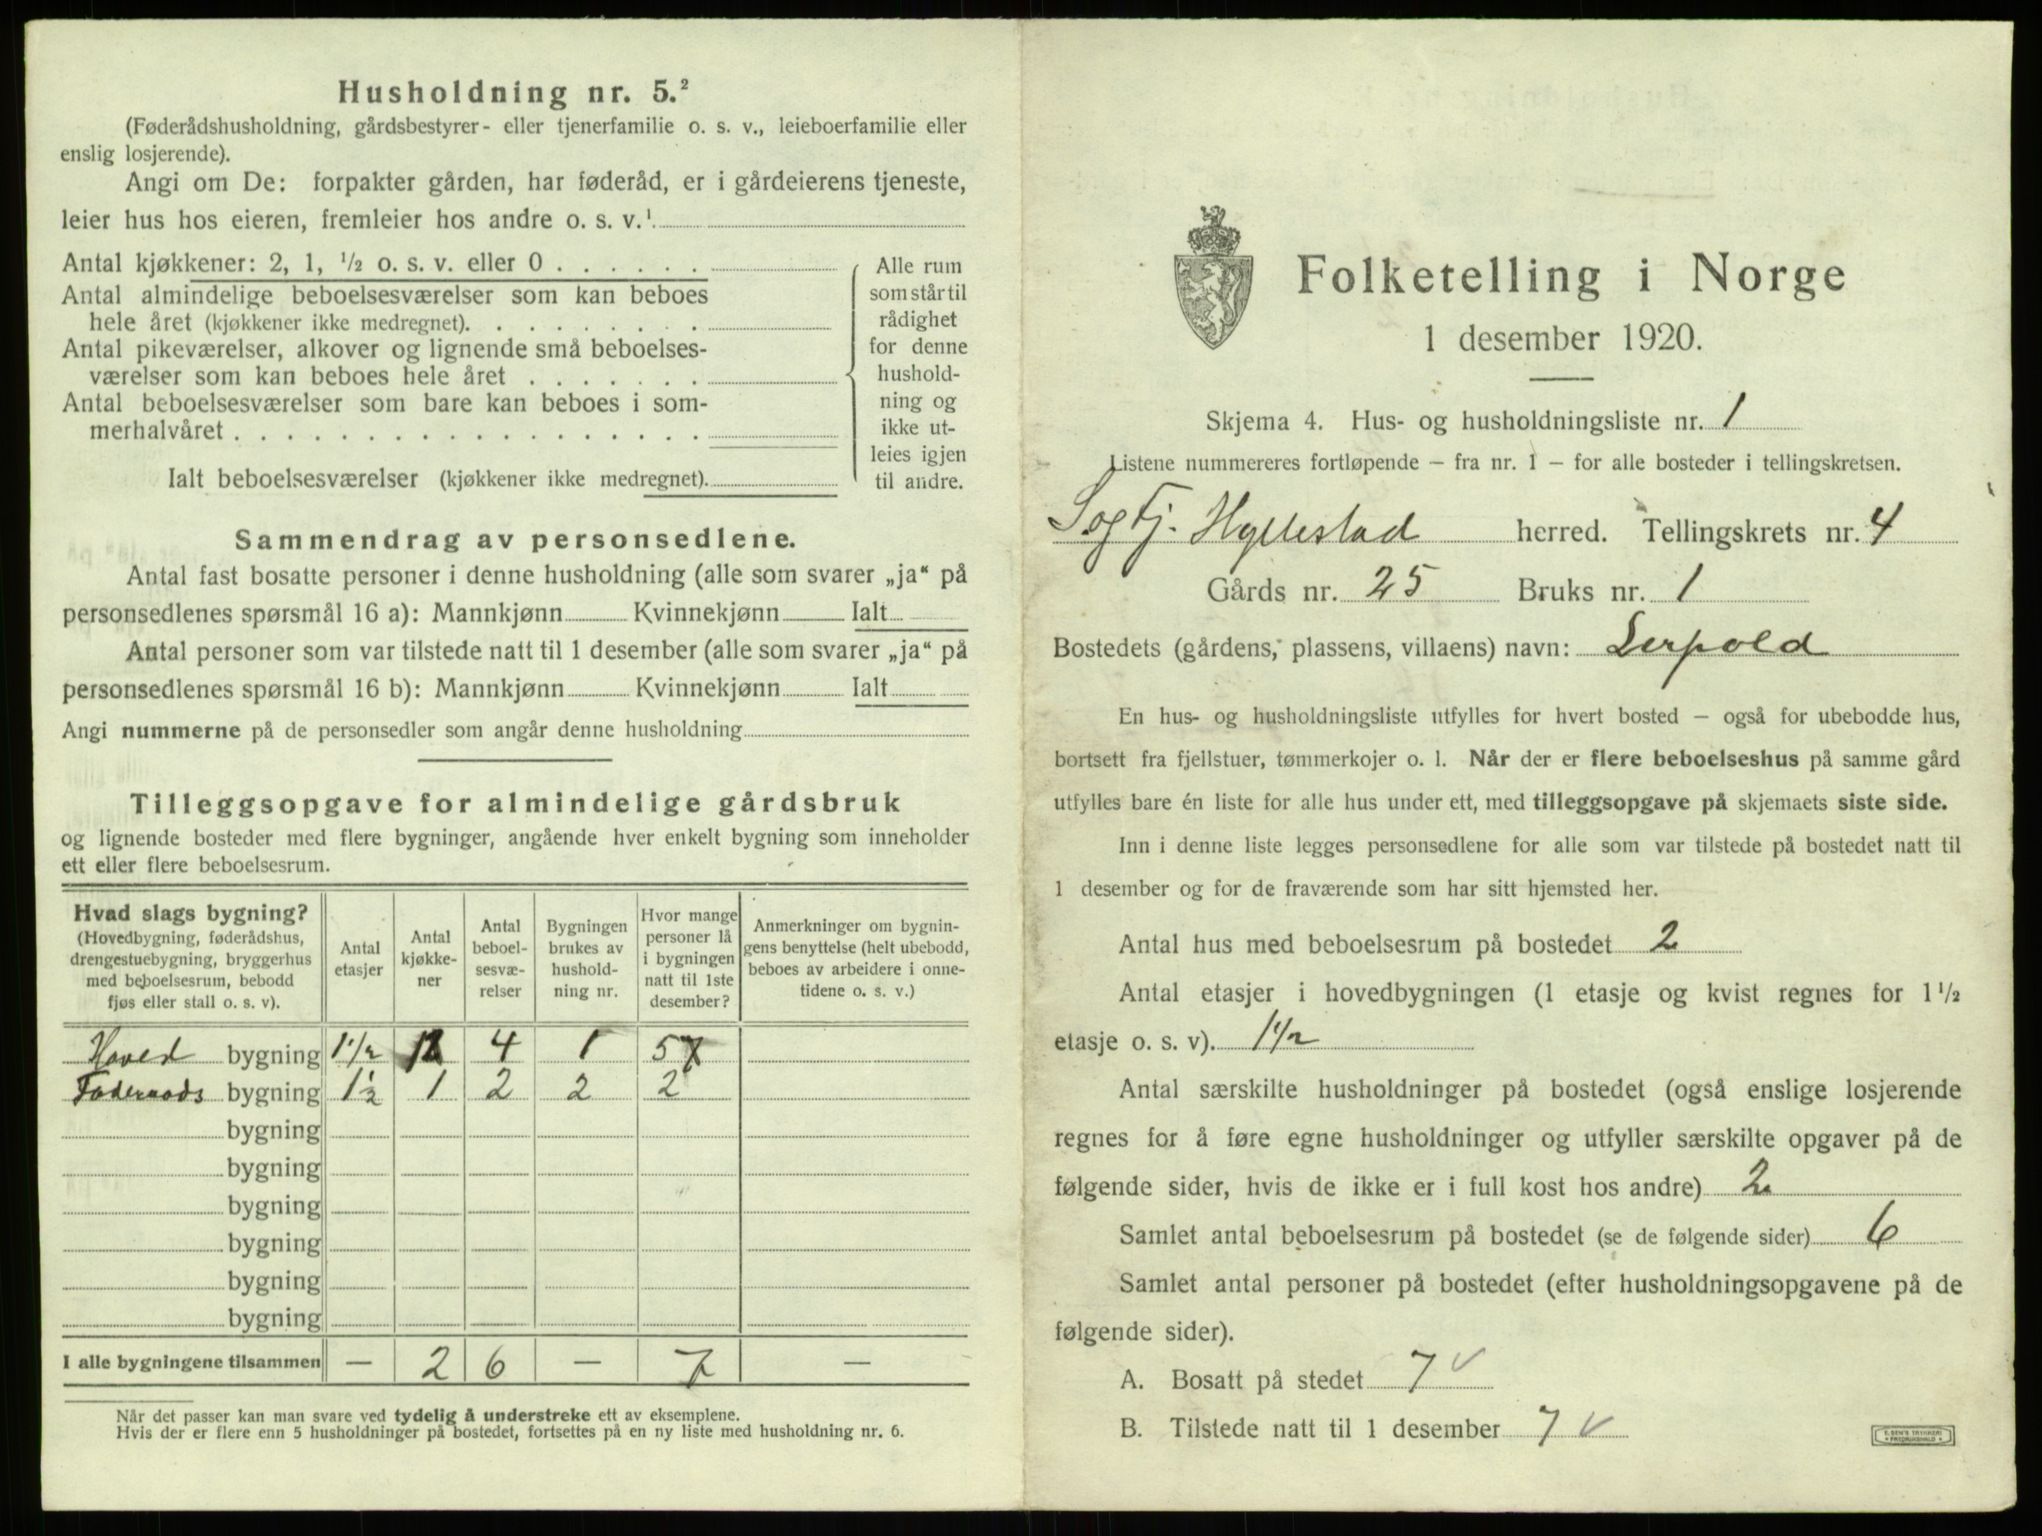 Husholdning nr. 5.²
(Føderådshusholdning, gårdsbestyrer- eller tjenerfamilie o. s. v., leieboerfamilie eller
enslig losjerende).
Angi om De: forpakter gården, har føderåd, er i gårdeierens tjeneste,
leier hus hos eieren, fremleier hos andre o. s. v.¹
Antal kjøkkener: 2, 1, ½ o. s. v. eller 0 . . . . . .
Antal almindelige beboelsesværelser som kan beboes
hele året (kjøkkener ikke medregnet). . . . . . . . .
Antal pikeværelser, alkover og lignende små beboelses-
værelser som kan beboes hele året . . . . . . .
Antal beboelsesværelser som bare kan beboes i som-
merhalvåret . . . . . . . . . . . . . . . . . .
Ialt beboelsesværelser (kjøkkener ikke medregnet).
Alle rum
som står til
rådighet
for denne
hushold-
ning og
ikke ut-
leies igjen
til andre.
Sammendrag av personsedlene.
Antal fast bosatte personer i denne husholdning (alle som svarer „ja“ på
personsedlenes spørsmål 16 a): Mannkjønn Kvinnekjønn Ialt
Antal personer som var tilstede natt til 1 desember (alle som svarer „ja“ på
personsedlenes spørsmål 16 b): Mannkjønn Kvinnekjønn Ialt
Angi nummerne på de personsedler som angår denne husholdning
Tilleggsopgave for almindelige gårdsbruk
og lignende bosteder med flere bygninger, angående hver enkelt bygning som inneholder
ett eller flere beboelsesrum.
Hvad slags bygning?
(Hovedbygning, føderådshus,
drengestuebygning, bryggerhus
med beboelsesrum, bebodd
fjøs eller stall o. s. v).
Antal
etasjer
Antal
kjøkke-
ner
Antal
beboel-
sesvæ-
relser
Bygningen
brukes av
hushold-
ning nr.
Hvor mange
personer lå
i bygningen
natt til 1ste
desember?
Anmerkninger om bygnin-
gens benyttelse (helt ubebodd,
beboes av arbeidere i onne-
tidene o. s. v.)
Hoved bygning 1½ 1 4 1 5
Føderaads bygning 1½ 1 2 2 2
bygning
bygning
bygning
bygning
bygning
bygning
I alle bygningene tilsammen — 2 6 — 7 —
Når det passer kan man svare ved tydelig å understreke ett av eksemplene.
Hvis der er flere enn 5 husholdninger på bostedet, fortsettes på en ny liste med husholdning nr. 6.
Folketelling i Norge
1 desember 1920.
Skjema 4. Hus- og husholdningsliste nr. 1
Listene nummereres fortløpende – fra nr. 1 – for alle bosteder i tellingskretsen.
Sogn Fj. Hyllestad herred. Tellingskrets nr. 4
Gårds nr. 25 Bruks nr. 1
Bostedets (gårdens, plassens, villaens) navn: Lerpold
En hus- og husholdningsliste utfylles for hvert bosted – også for ubebodde hus,
bortsett fra fjellstuer, tømmerkojer o. l. Når der er flere beboelseshus på samme gård
utfylles bare én liste for alle hus under ett, med tilleggsopgave på skjemaets siste side.
Inn i denne liste legges personsedlene for alle som var tilstede på bostedet natt til
1 desember og for de fraværende som har sitt hjemsted her.
Antal hus med beboelsesrum på bostedet 2
Antal etasjer i hovedbygningen (1 etasje og kvist regnes for 1½
etasje o. s. v). 1½
Antal særskilte husholdninger på bostedet (også enslige losjerende
regnes for å føre egne husholdninger og utfyller særskilte opgaver på de
følgende sider, hvis de ikke er i full kost hos andre) 2
Samlet antal beboelsesrum på bostedet (se de følgende sider) 6
Samlet antal personer på bostedet (efter husholdningsopgavene på de
følgende sider).
A. Bosatt på stedet 7 v
B. Tilstede natt til 1 desember 7 v